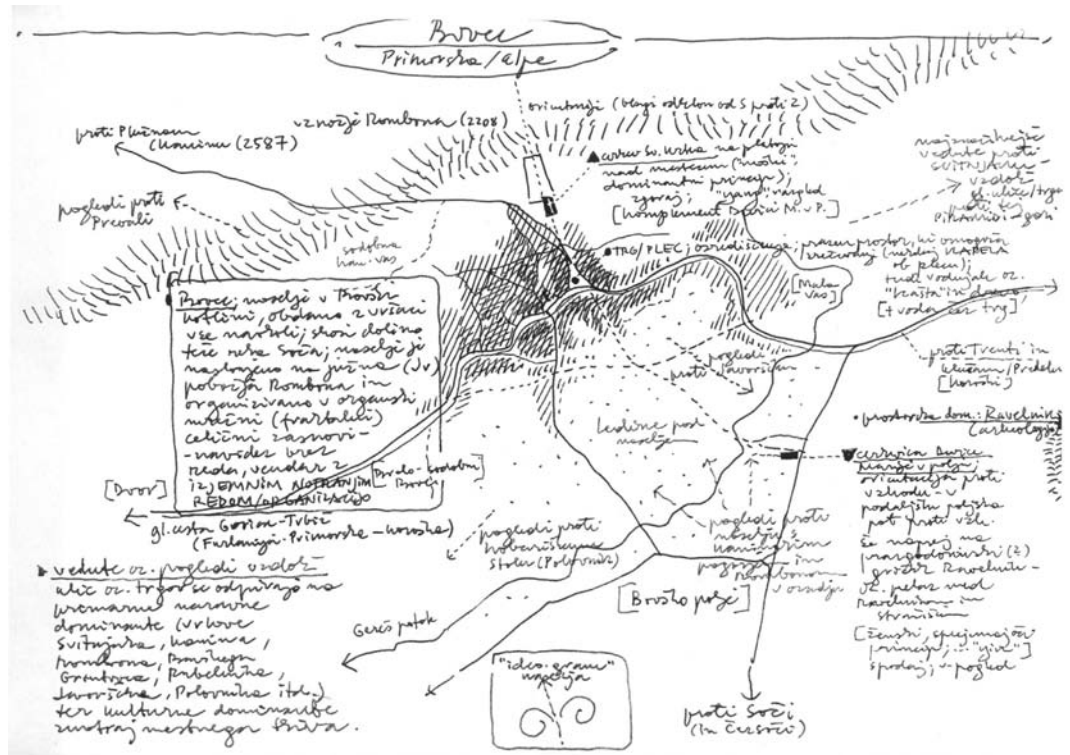 Bovec
Primorska/alpe
orientacija (blagi odklon od S proti Z)
vznožje Rombona (2208)
proti Plužnam
Kaninu (2587)
pogledi proti
Prevali
sodobna
vas
cerkev sv. Urha na pletoji
nad mestecem ("moški",
dominantni princip),
zgoraj, "yang" razgled
[komplement Devici M. v P.]
najznačilnejše
vedute proti
Svinjaku
vzdolž
gl. ulice/trga
proti tej
PIRAMIDI-gori
TRG/PLEC; osredičenje; prazen prostor, ki omogoča
(nekdaj KAPELA
ob plecu);
tudi vodnjak oz.
"hrasta" in drevo,
[+ voda čez trg]
[Mala
vas]
Bovec; naselje v Bovški
kotlini, obdano z vršaci
vse naokoli; skozi dolino
teče reka Soča; naselje je
naslonjeno na južna (JV)
pobočja Rombona in
organizirano v organski
mrežni (fraktalni)
celični zasnovi-
-navidez brez
reda, vendar z
IZJEMNIM NOTRANJIM
REDOM/ORGANIZACIJO
[Dvor]
gl. cesta Gorica-Trbiž
(Furlanija-Primorska-Koroška)
pogledi
proti Javorščku
proti Trenti in
Klužam/Predelu
[Koroški]
ledine pod
naseljem
prostorska dom.: Ravelnik
(arheologija)
cerkvica Device
Marije v polju;
orientacija proti
vzhodu - v
podaljšku poljska
pot proti vzh.
še naprej na
prazgodovinski (?)
grožar Ravelnik-
oz. prelaz med
Ravelnikom in
[ženski, sprejemajoči
princip; "yin"]
spodaj, v pogled
pogledi proti
kobariškemu
Stolu (Polovnik)
pogledi proti
naselju s
Kaninskim
pogorjem in
Rombonom
v ozadju
[Bovško polje]
vedute oz. pogledi vzdolž
ulic oz. trgov se odpirajo na
primarne naravne
dominante (vrhove
Svinjaka, Kanina,
Rombona, Bavškega
Grintavca, Rabeljnika,
Javorščka, Polovnika itd.)
ter kulturne dominante
znotraj mestnega tkiva.
Gereš potok
"ideo-gram"
naselja
proti Soči
(in Čezsoči)